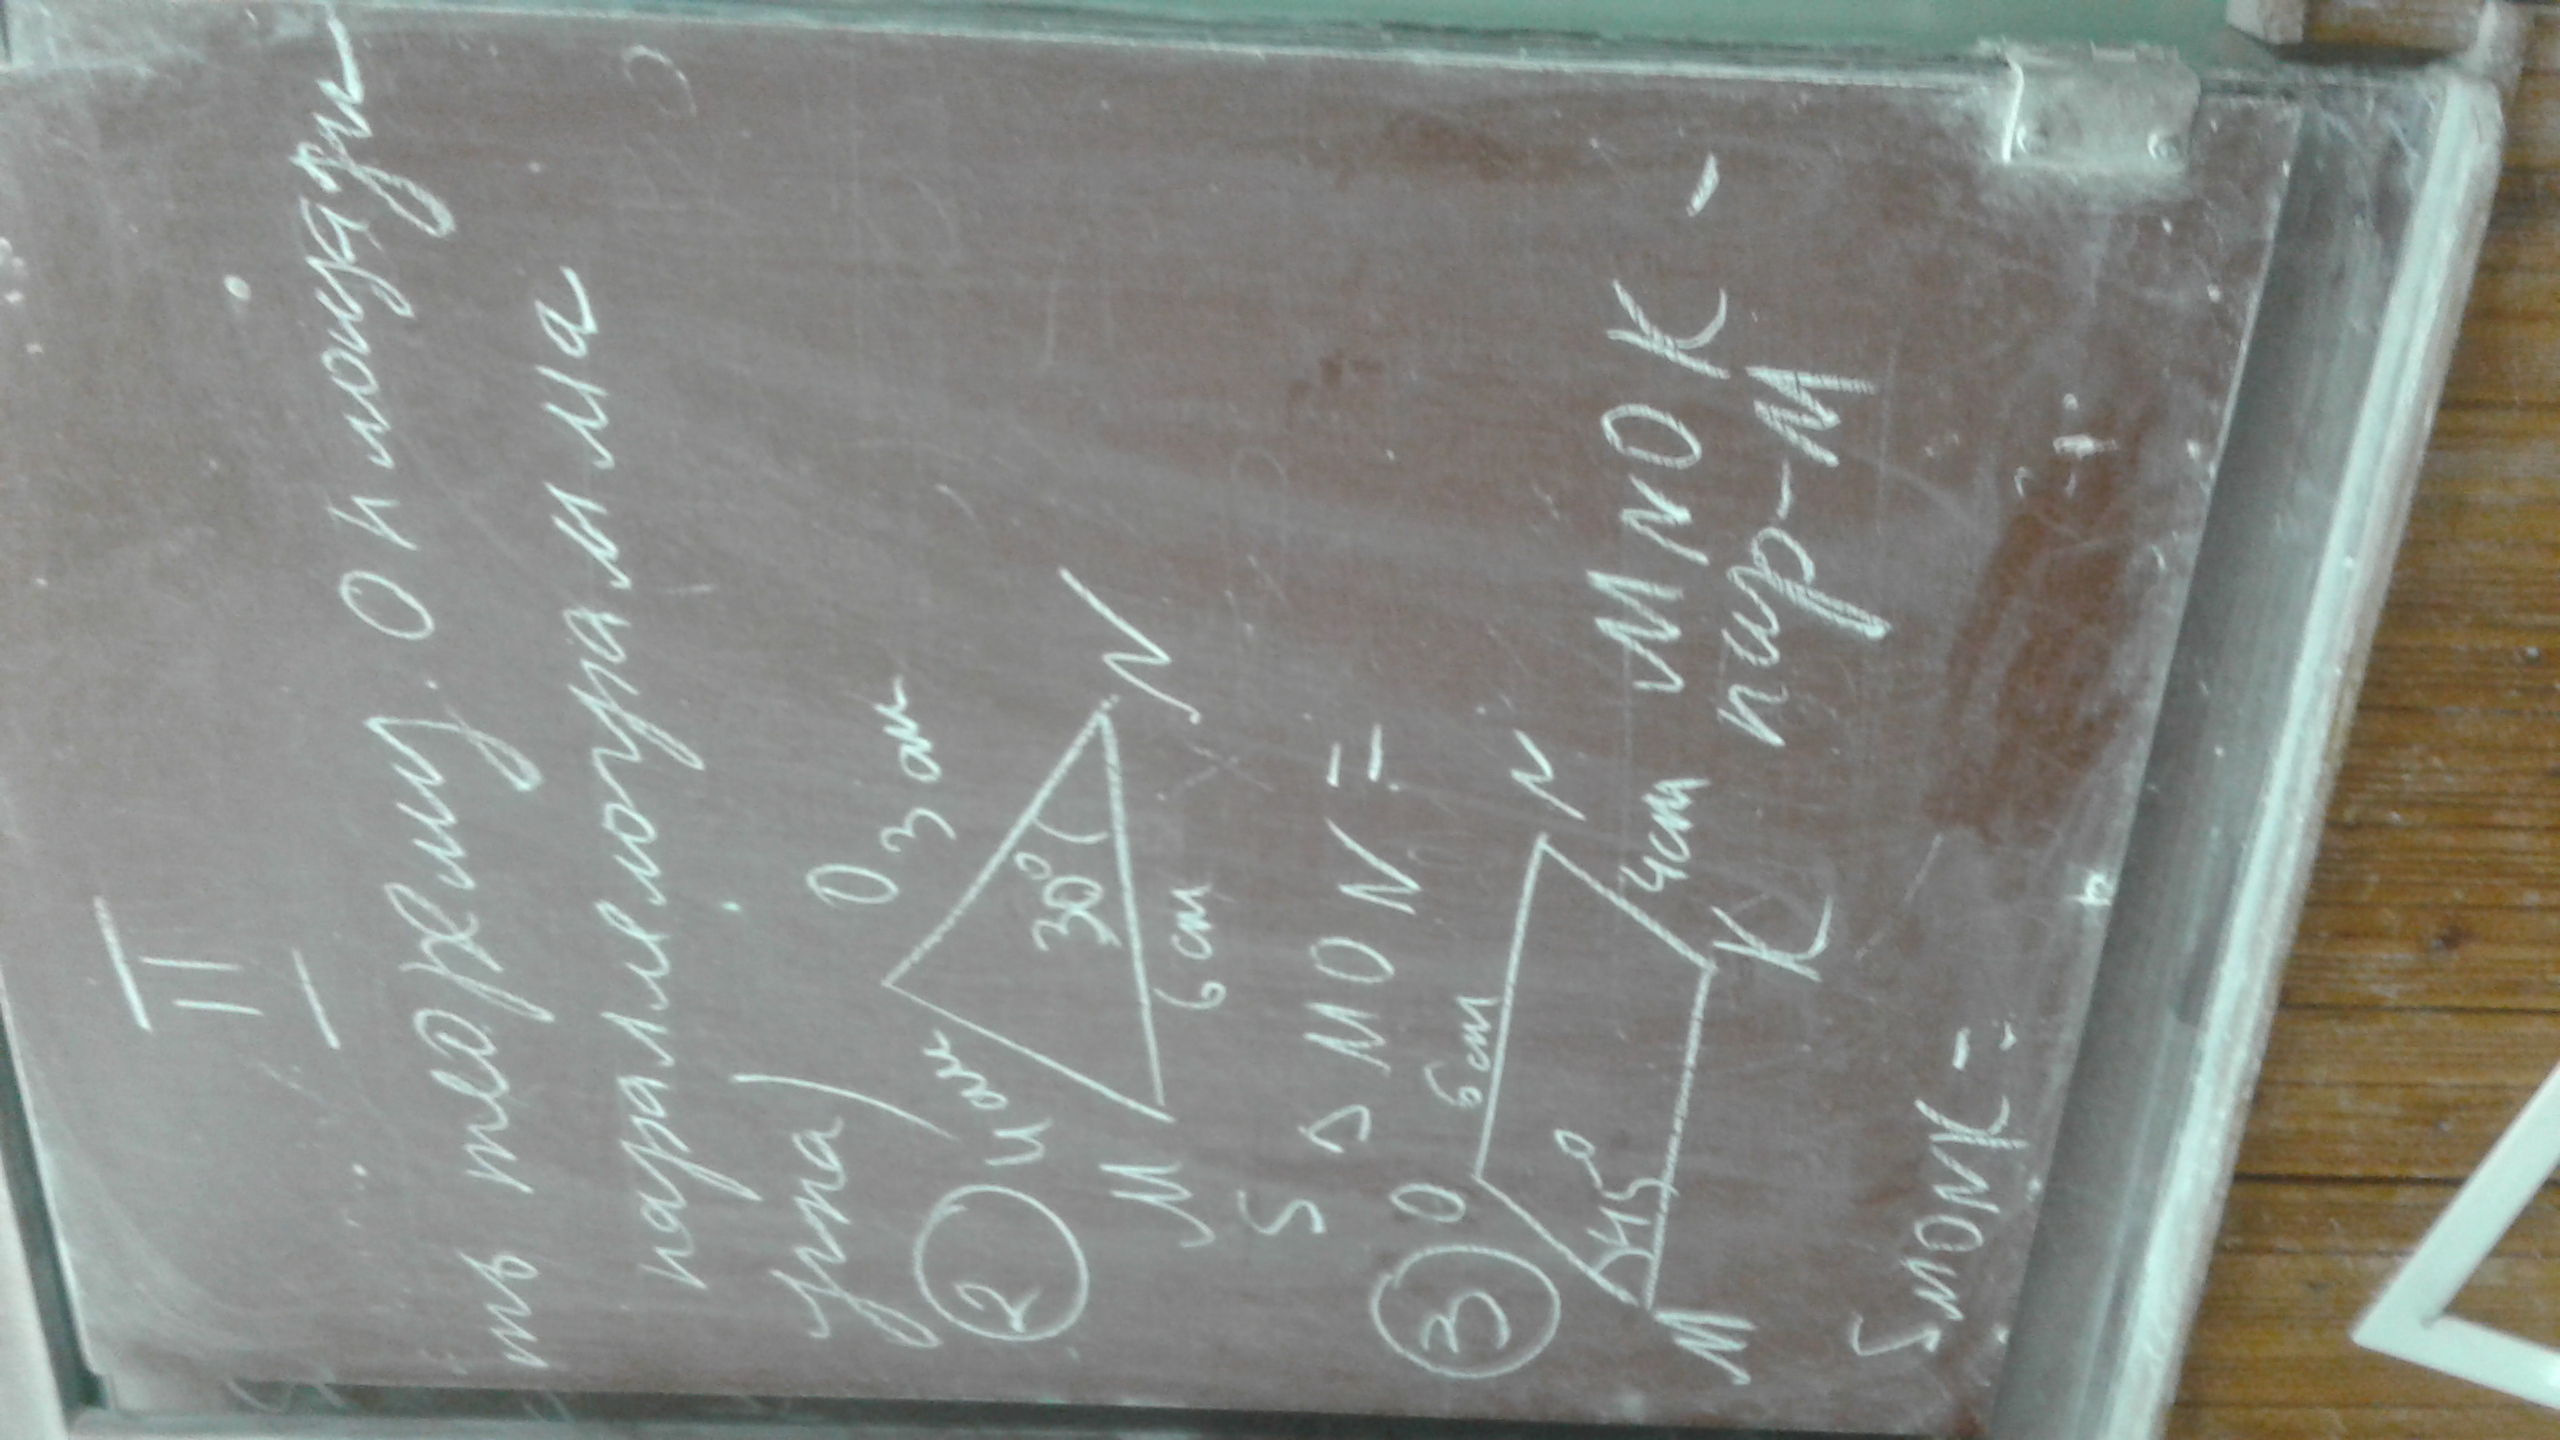 II
ть теорему. о площади
параллелограмма
угла)
2
O
4 см
3 см
30°
M
6 см
N
S ∆ MON =
3
O
6 см
N
45°
4 см
M
K
MNOK -
пар-м
SMONK =